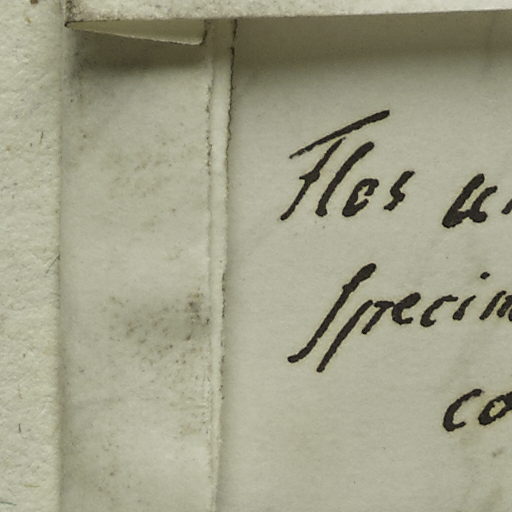 Flos u
specim
co